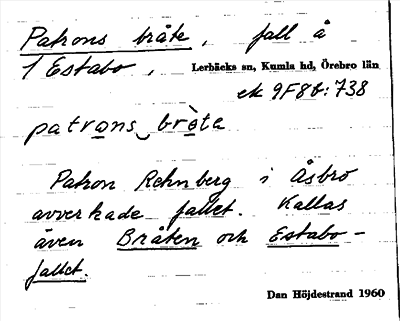 Patrons bråte, fall å
1 Estabo, Lerbäcks sn, Kumla hd, Örebro län
ek 9F8b:738
patrons bròte
Patron Rehnberg i Åsbro
avverkade fallet. Kallas
även Bråten och Estabo-
fallet.
Dan Höjdestrand 1960